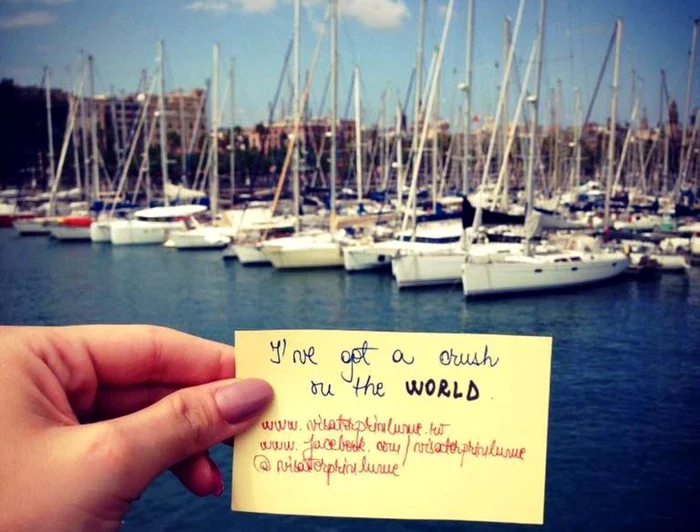 I've got a crush
on the WORLD.
www.visatorprinlume.ro
www.facebook.com/visatorprinlume
@visatorprinlume